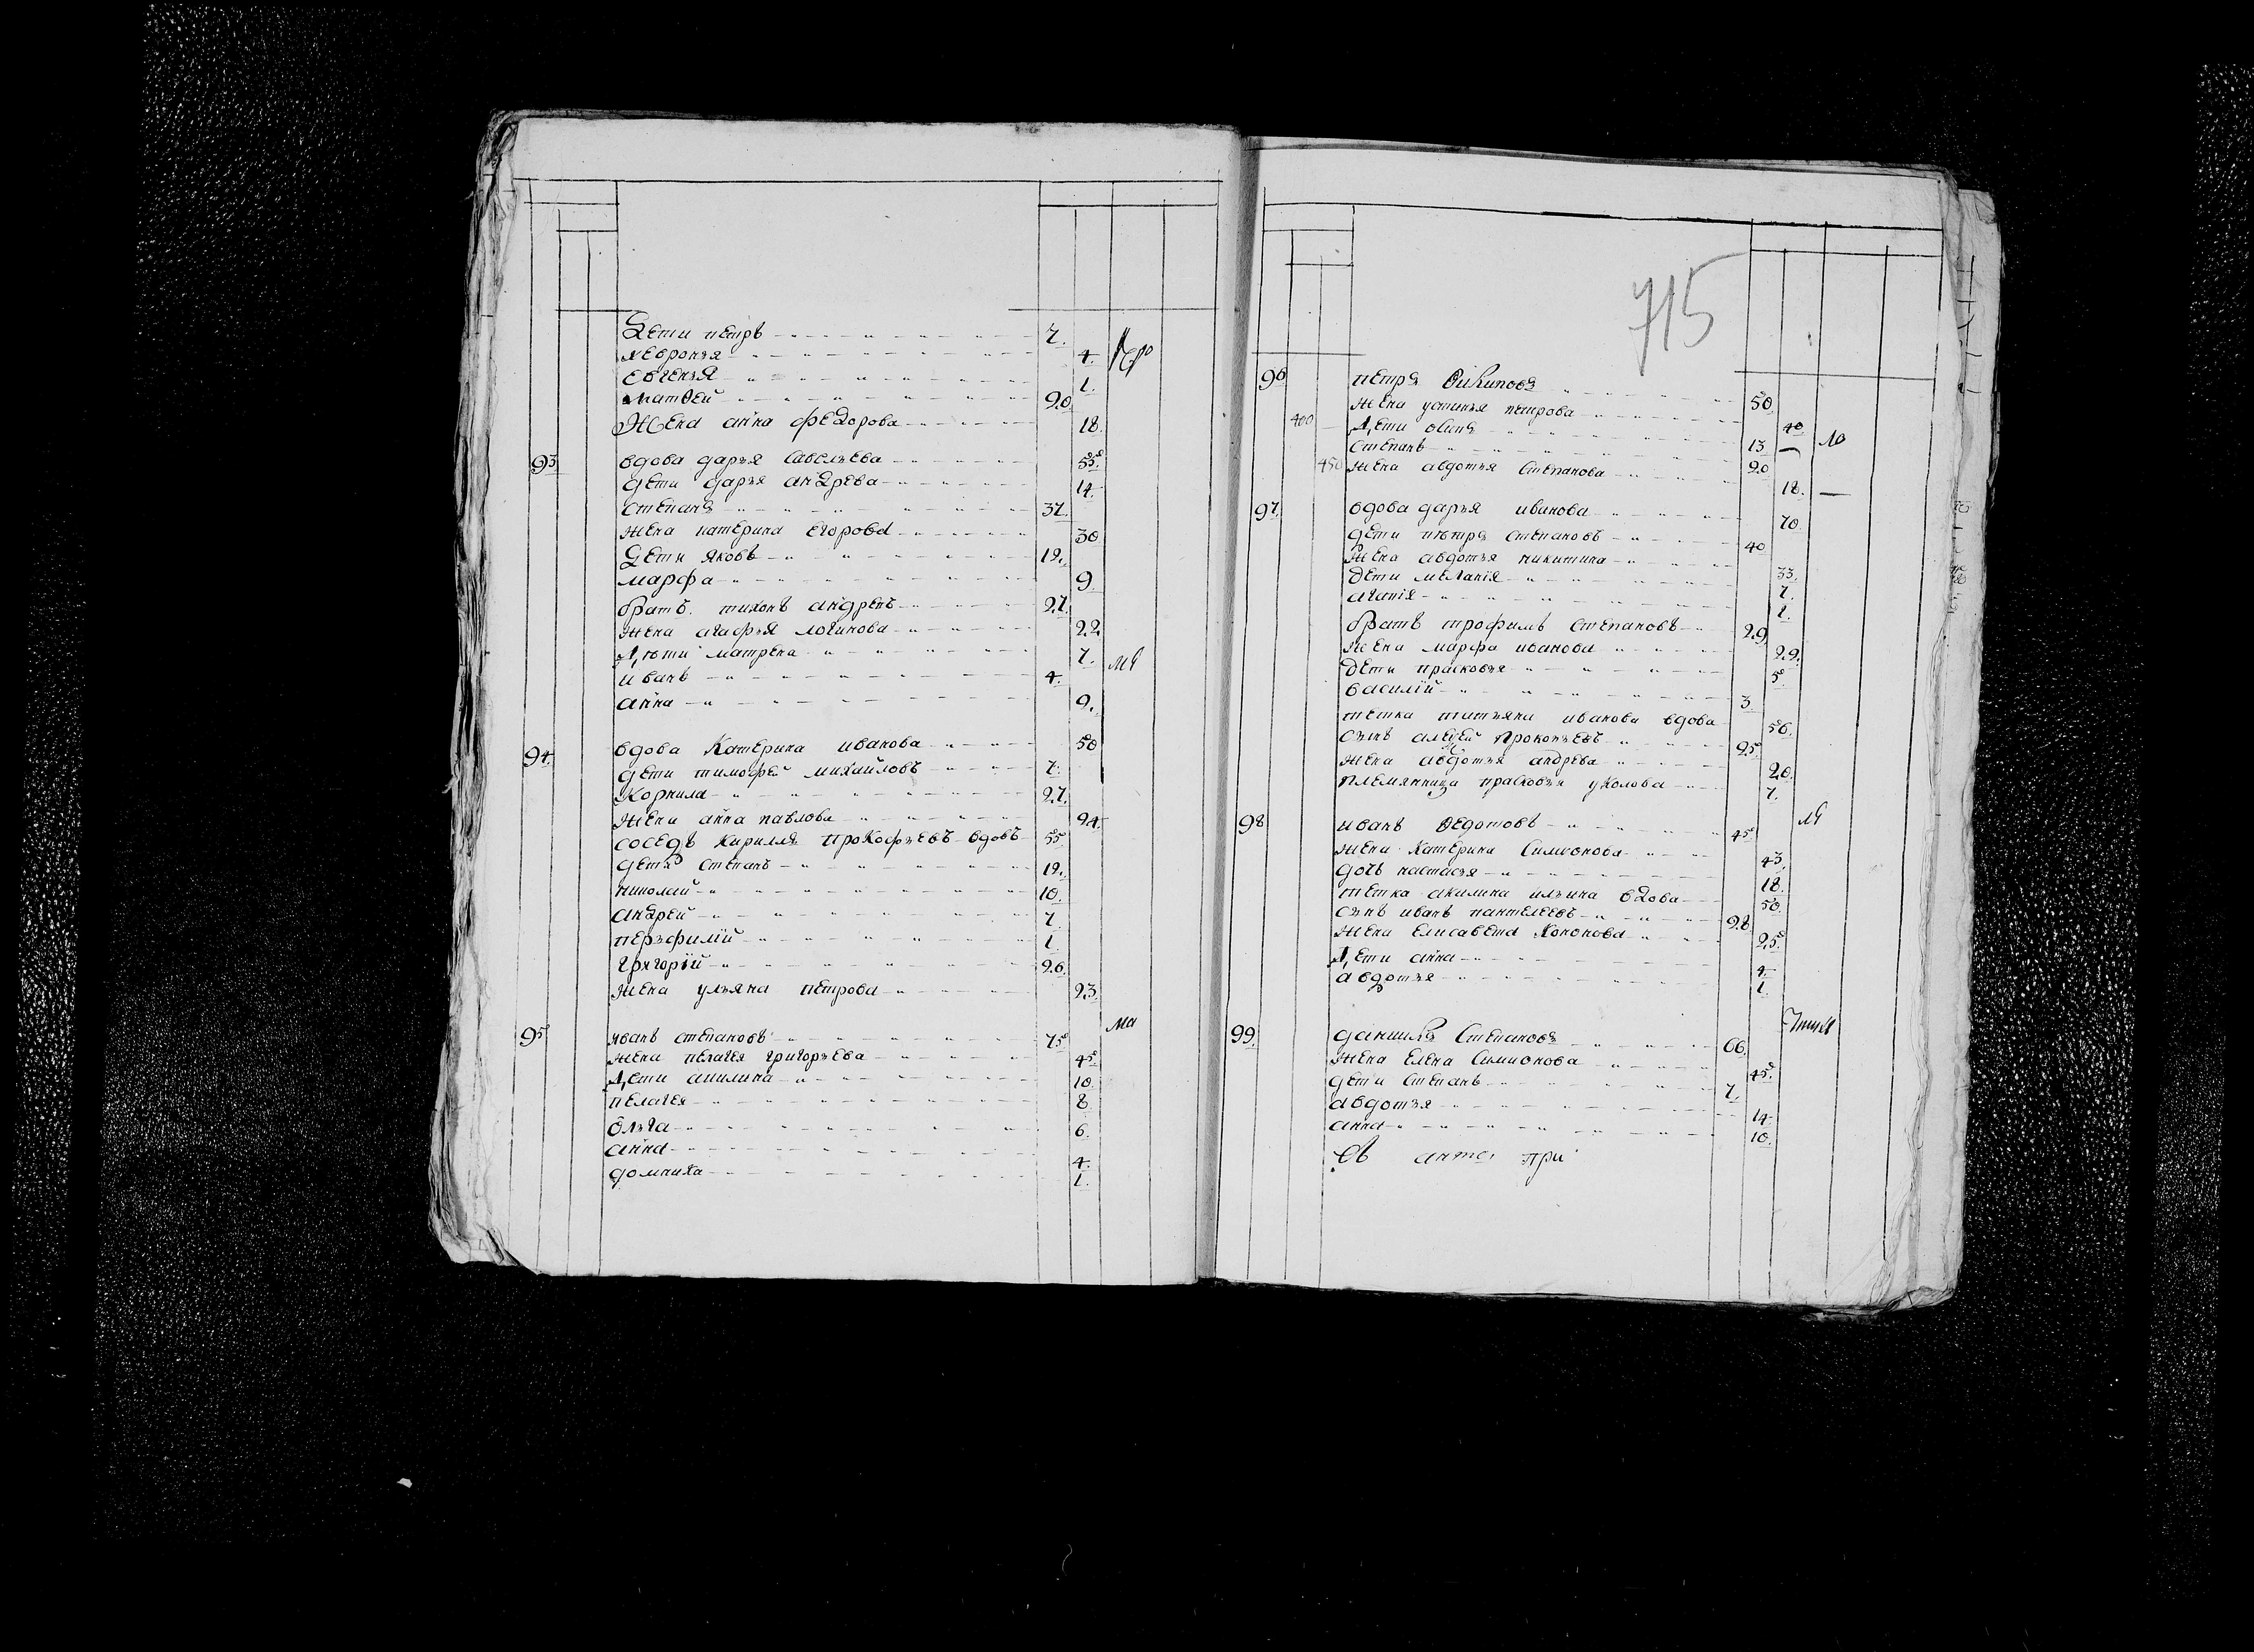 Дети петръ 7.
хевронья 4.
евгенья 1.
матвей 20
Жена анна федорова 18.
93 вдова дарья савельева 55.
дети дарья андрева 14.
степанъ 37.
жена катерина егорова 30
Дети яковъ 12.
марфа 9.
братъ тихонъ андревъ 27.
жена агафья логинова 22
Дѣти матрена 7.
иванъ 4.
анна 2.
94. вдова Катерина иванова 50
дети тимофей михайловъ 7.
Корнила 27.
жена анна павлова 24.
соседъ кирилъ прокофьевъ вдовъ 55
дети степанъ 12.
николай 10.
андрей 7
перьфилий 1
григорий 26.
жена ульяна петрова 23.
95 иванъ степановъ 75
жена пелагея григорьева 45
Дети акилина 10.
пелагея 8
ольга 6.
анна 4.
домника 1.
715
96 петръ 50
400 жена устинья петрова 40
Дети 13
степанъ 20
450 жена авдотья степанова 18.
97. вдова дарья иванова 70
дети петръ степановъ 40
жена авдотья никитина 33.
дети мелания 7.
агапия 1.
братъ трофимъ степановъ 29
жена марфа иванова 29.
дети прасковья 5
василий 3.
тетка татьяна иванова вдова 56.
сынъ прокопьевъ 25
жена авдотья андрева 20.
племянница прасковья уколова 7.
98 иванъ ѳедотовъ 45
жена катерина симионова 43.
дочь настасья 18.
тетка акилина ильина вдова 50.
сынъ иванъ пантелеевъ 28
жена елисавета кононова 25.
Дети анна 4
авдотья 1.
99. данила степановъ 66.
жена елена симионова 45.
дети степанъ 7.
авдотья 14
анна 10.
при